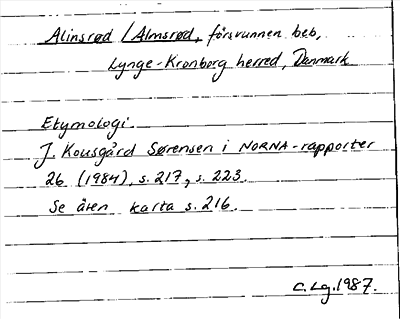 Alinsrød / Almsrød, försvunnen beb,
Lynge-Kronborg herred, Danmark
Etymologi.
J. Kousgård Sørensen i NORNA-rapporter
26 (1984), s. 217, s. 223.
Se även karta s. 216.
C. Lg. 1987.